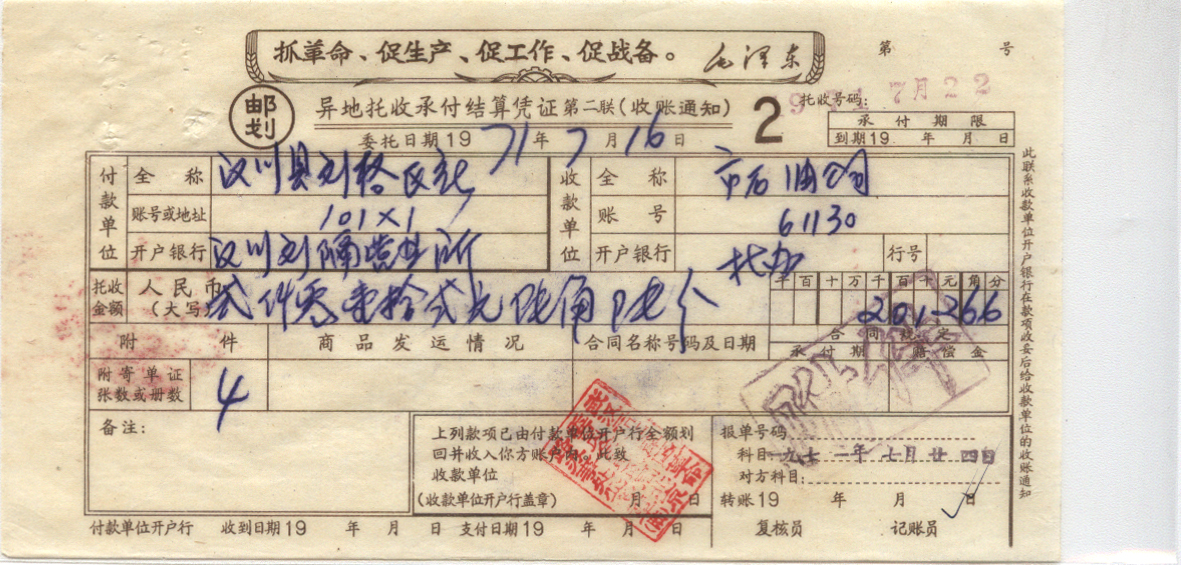 抓革命、促生产、促工作、促战备。 毛泽东
第 号
邮划
异地托收承付结算凭证 第二联(收账通知) 2 托收号码:
1971 7月22
委托日期1971年7月16日
承付期限
到期19 年 月 日
付款单位 全称 汉川县刘格区社
收款单位 全称 市石油公司
账号或地址 101×1
账号 61130
开户银行 汉川刘隔营业所
开户银行 托办 行号
托收金额 人民币(大写) 贰仟零壹拾贰元陆角陆分
千百十万千百十元角分
201266
附件 商品发运情况 合同名称号码及日期
合同规定
承付期 赔偿金
附寄单证张数或册数 4
备注:
上列款项已由付款单位开户行全额划
回并收入你方账户内。此致
收款单位
(收款单位开户行盖章) 月 日
报单号码
科目 一九七一年七月廿四日
对方科目:
转账19 年 月 日
付款单位开户行 收到日期19 年 月 日 支付日期19 年 月 日
复核员 记账员
此联系收款单位开户银行在款项收妥后给收款单位的收账通知